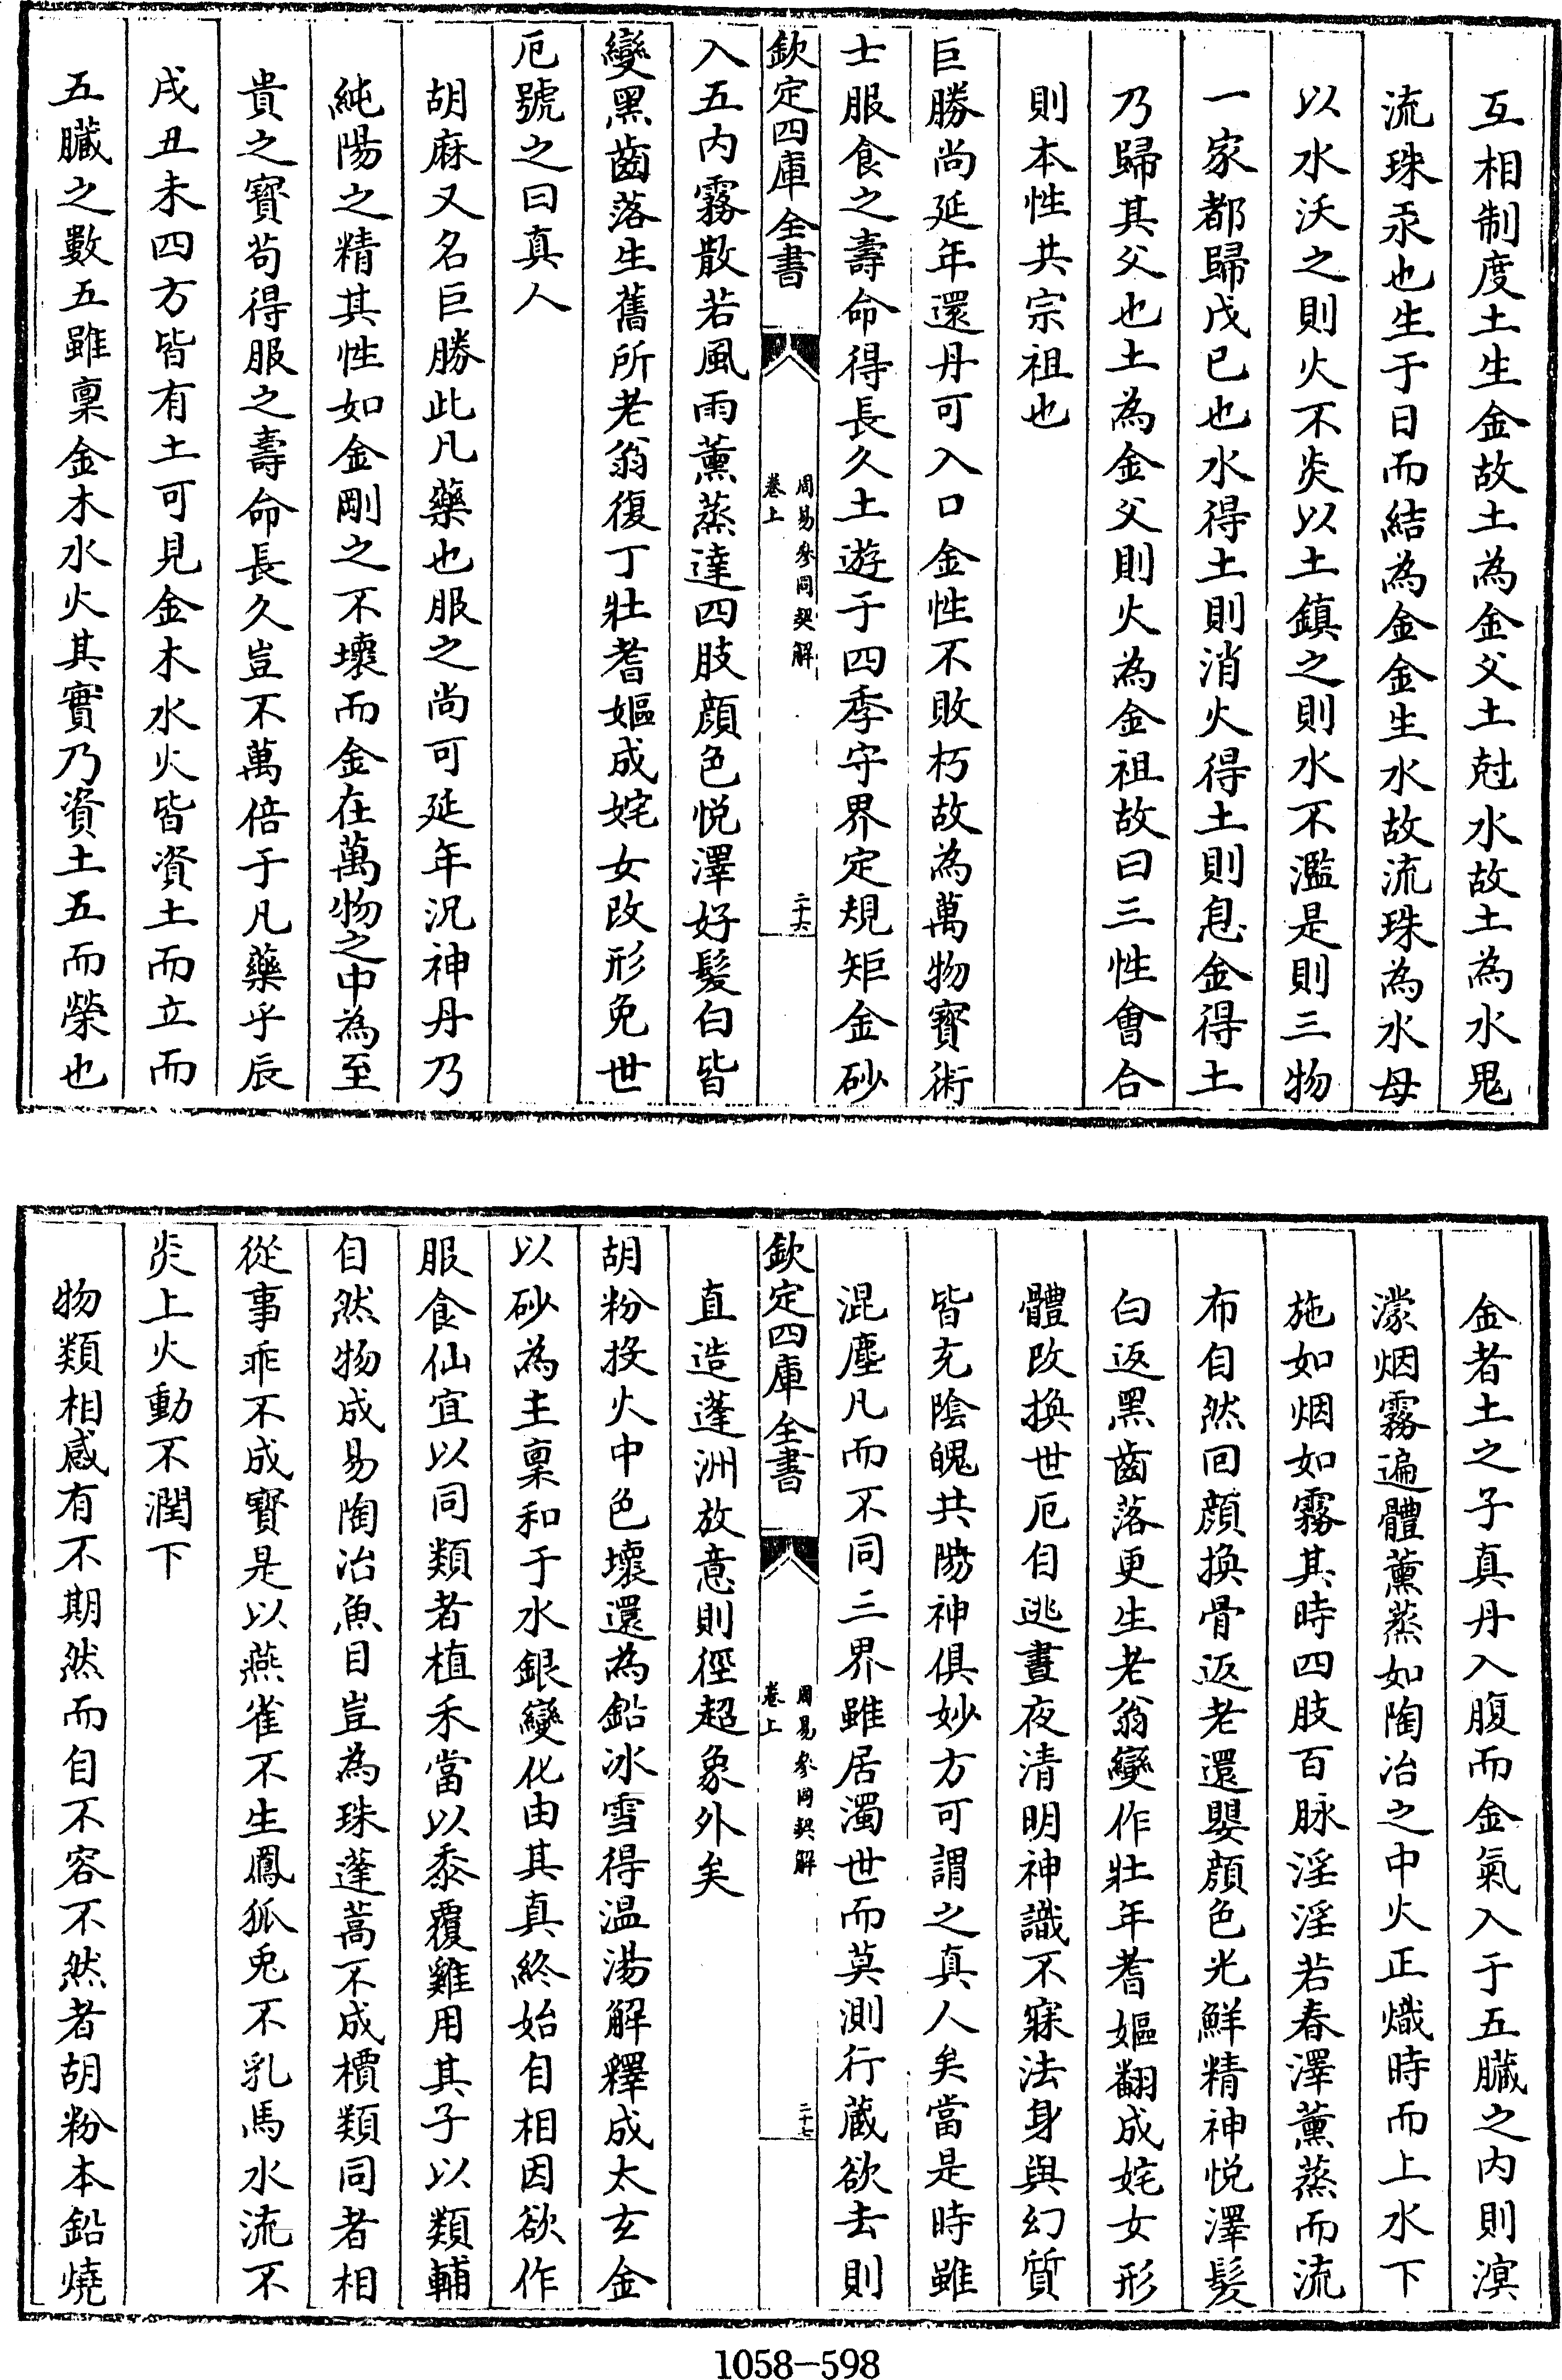 互相制度土生金故土為金父土尅水故土為水鬼
流珠汞也生于日而結為金金生水故流珠為水母
以水沃之則火不炎以土鎮之則水不濫是則三物
一家都歸戊已也水得土則消火得土則息金得土
乃歸其父也土為金父則火為金祖故曰三性會合
則本性共宗祖也
巨勝尚延年還丹可入口金性不敗朽故為萬物寳術
士服食之壽命得長久土遊于四季守界定規矩金砂
欽定四庫全書
周易參同契解
卷上
二十六
入五内霧散若風雨薰蒸達四肢顔色悦澤好髪白皆
變黑齒落生舊所老翁復丁壯耆嫗成姹女改形免世
厄號之曰真人
胡麻又名巨勝此凡藥也服之尚可延年況神丹乃
純陽之精其性如金剛之不壞而金在萬物之中為至
貴之寳苟得服之壽命長久豈不萬倍于凡藥乎辰
戌丑未四方皆有土可見金木水火皆資土而立而
五臟之數五雖稟金木水火其實乃資土五而榮也
金者土之子真丹入腹而金氣入于五臟之内則溟
濛烟霧遍體薰蒸如陶冶之中火正熾時而上水下
施如烟如霧其時四肢百脉淫淫若春澤薰蒸而流
布自然回顔換骨返老還嬰顔色光鮮精神悦澤髪
白返黑齒落更生老翁變作壯年耆嫗翻成姹女形
體改換世厄自逃晝夜清明神識不寐法身與幻質
皆充陰魄共陽神俱妙方可謂之真人矣當是時雖
混塵凡而不同三界雖居濁世而莫測行藏欲去則
欽定四庫全書
周易參同契解
卷上
二十七
直造蓬洲放意則徑超象外矣
胡粉投火中色壞還為鉛冰雪得温湯解釋成太玄金
以砂為主稟和于水銀變化由其真終始自相因欲作
服食仙宜以同類者植禾當以黍覆雞用其子以類輔
自然物成易陶冶魚目豈為珠蓬蒿不成檟類同者相
從事乖不成寳是以燕雀不生鳳狐兎不乳馬水流不
炎上火動不潤下
物類相感有不期然而自不容不然者胡粉本鉛燒
1058—598